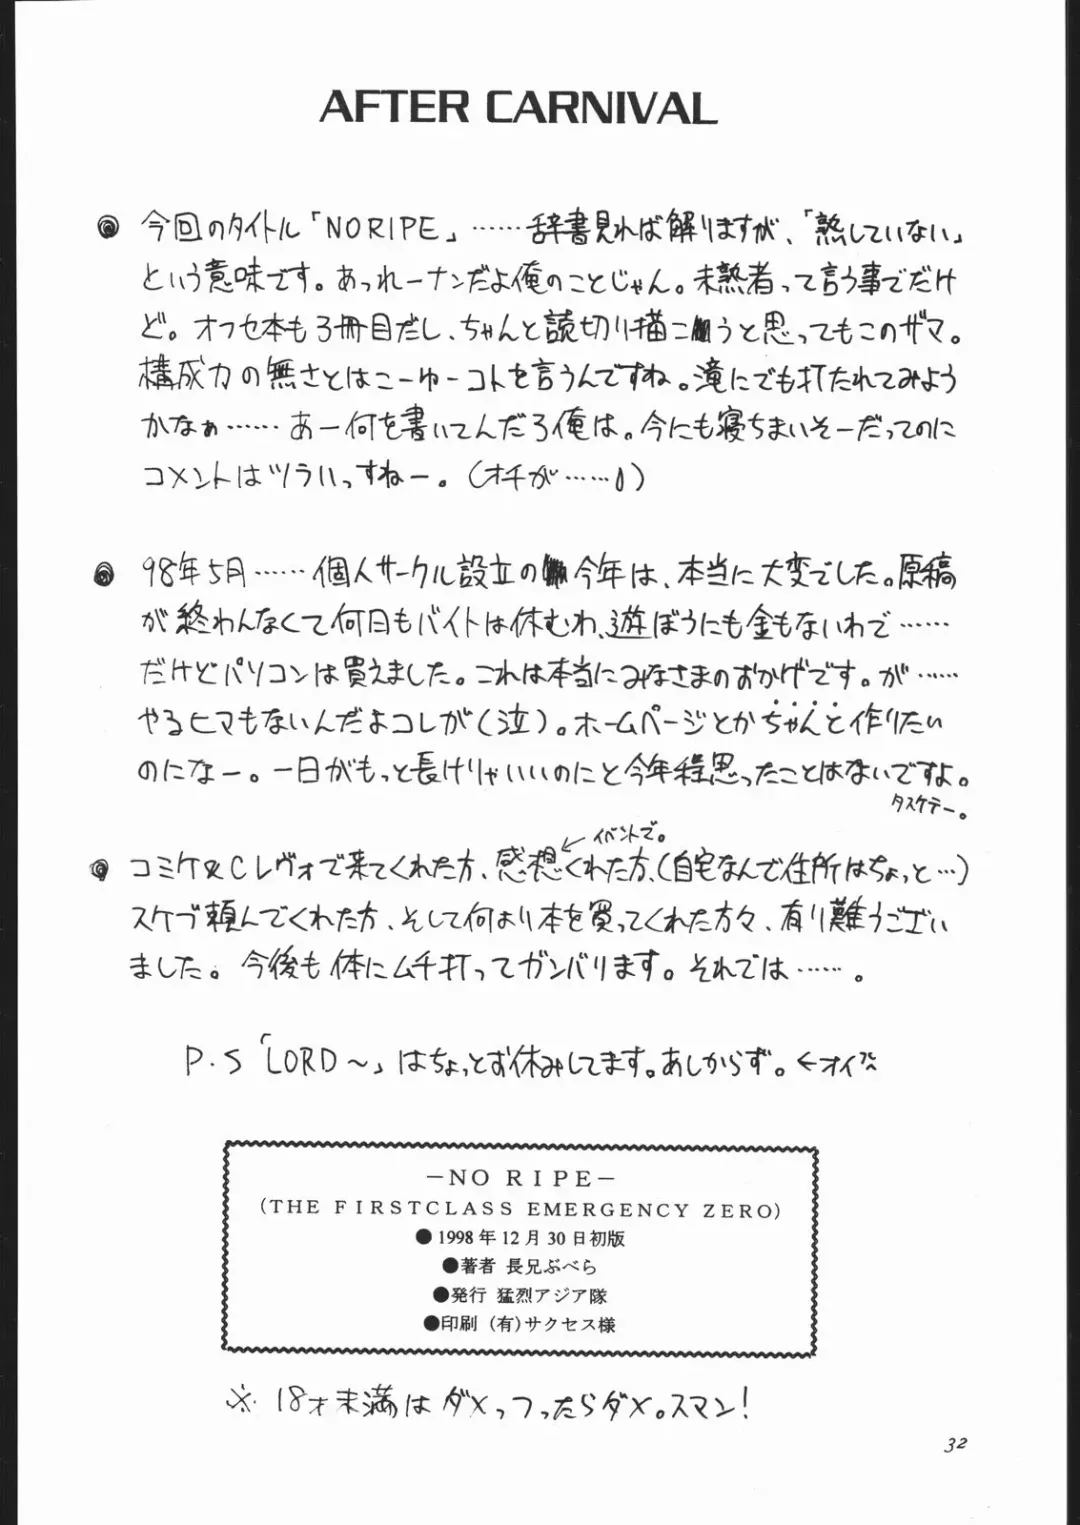 AFTER CARNIVAL
今回のタイトル「NORIPE」……辞書見れば解りますが、「熟していない」
という意味です。あっれーナンだよ俺のことじゃん。未熟者って言う事でだけ
ど。オフセ本も3冊目だし、ちゃんと読切り描こうと思ってもこのザマ。
構成力の無さとはこーゆーコトを言うんですね。滝にでも打たれてみよう
かなぁ……あー何を書いてんだろ俺は。今にも寝ちまいそーだってのに
コメントはツライっすねー。(オチが……)
98年5月……個人サークル設立の今年は、本当に大変でした。原稿
が終わんなくて何日もバイトは休むわ、遊ぼうにも金もないわで……
だけどパソコンは買えました。これは本当にみなさまのおかげです。が……
やるヒマもないんだよコレが(泣)。ホームページとかちゃんと作りたい
のになー。一日がもっと長けりゃいいのにと今年程思ったことはないですよ。
タスケテー。
←イベントで。
コミケ&Cレヴォで来てくれた方、感想くれた方、(自宅なんで住所はちょっと…)
スケブ頼んでくれた方、そして何より本を買ってくれた方々、有り難うござい
ました。今後も体にムチ打ってガンバります。それでは……。
P.S「LORD〜」はちょっとお休みしてます。あしからず。←オイ
−NO RIPE−
(THE FIRSTCLASS EMERGENCY ZERO)
●1998年12月30日初版
●著者 長兄ぶべら
●発行 猛烈アジア隊
●印刷 (有)サクセス様
※18才未満はダメっつったらダメ。スマン!
32